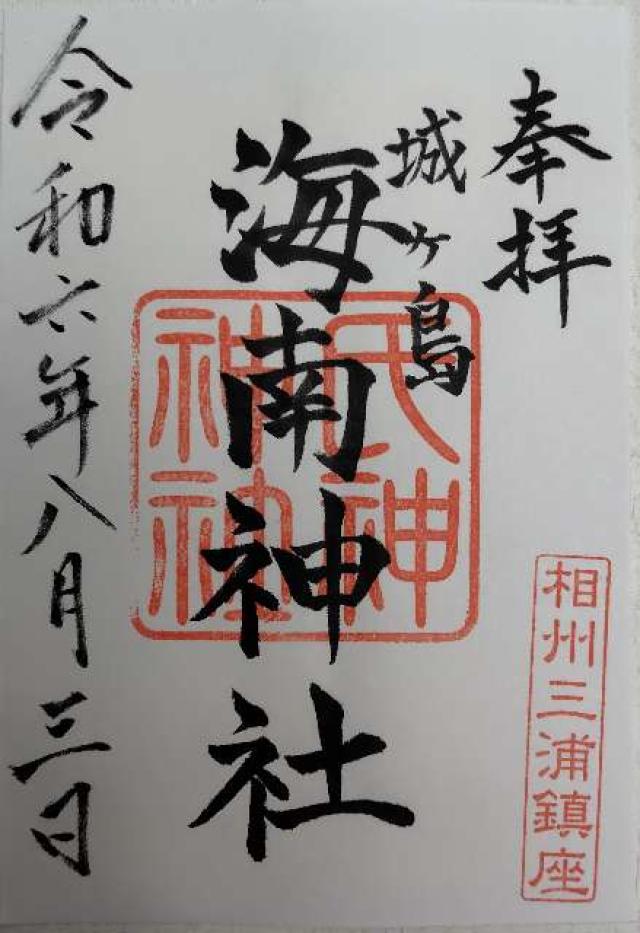 奉拝
相州三浦鎮座
城ヶ島
海南神社
氏神
神社
令和六年八月三日